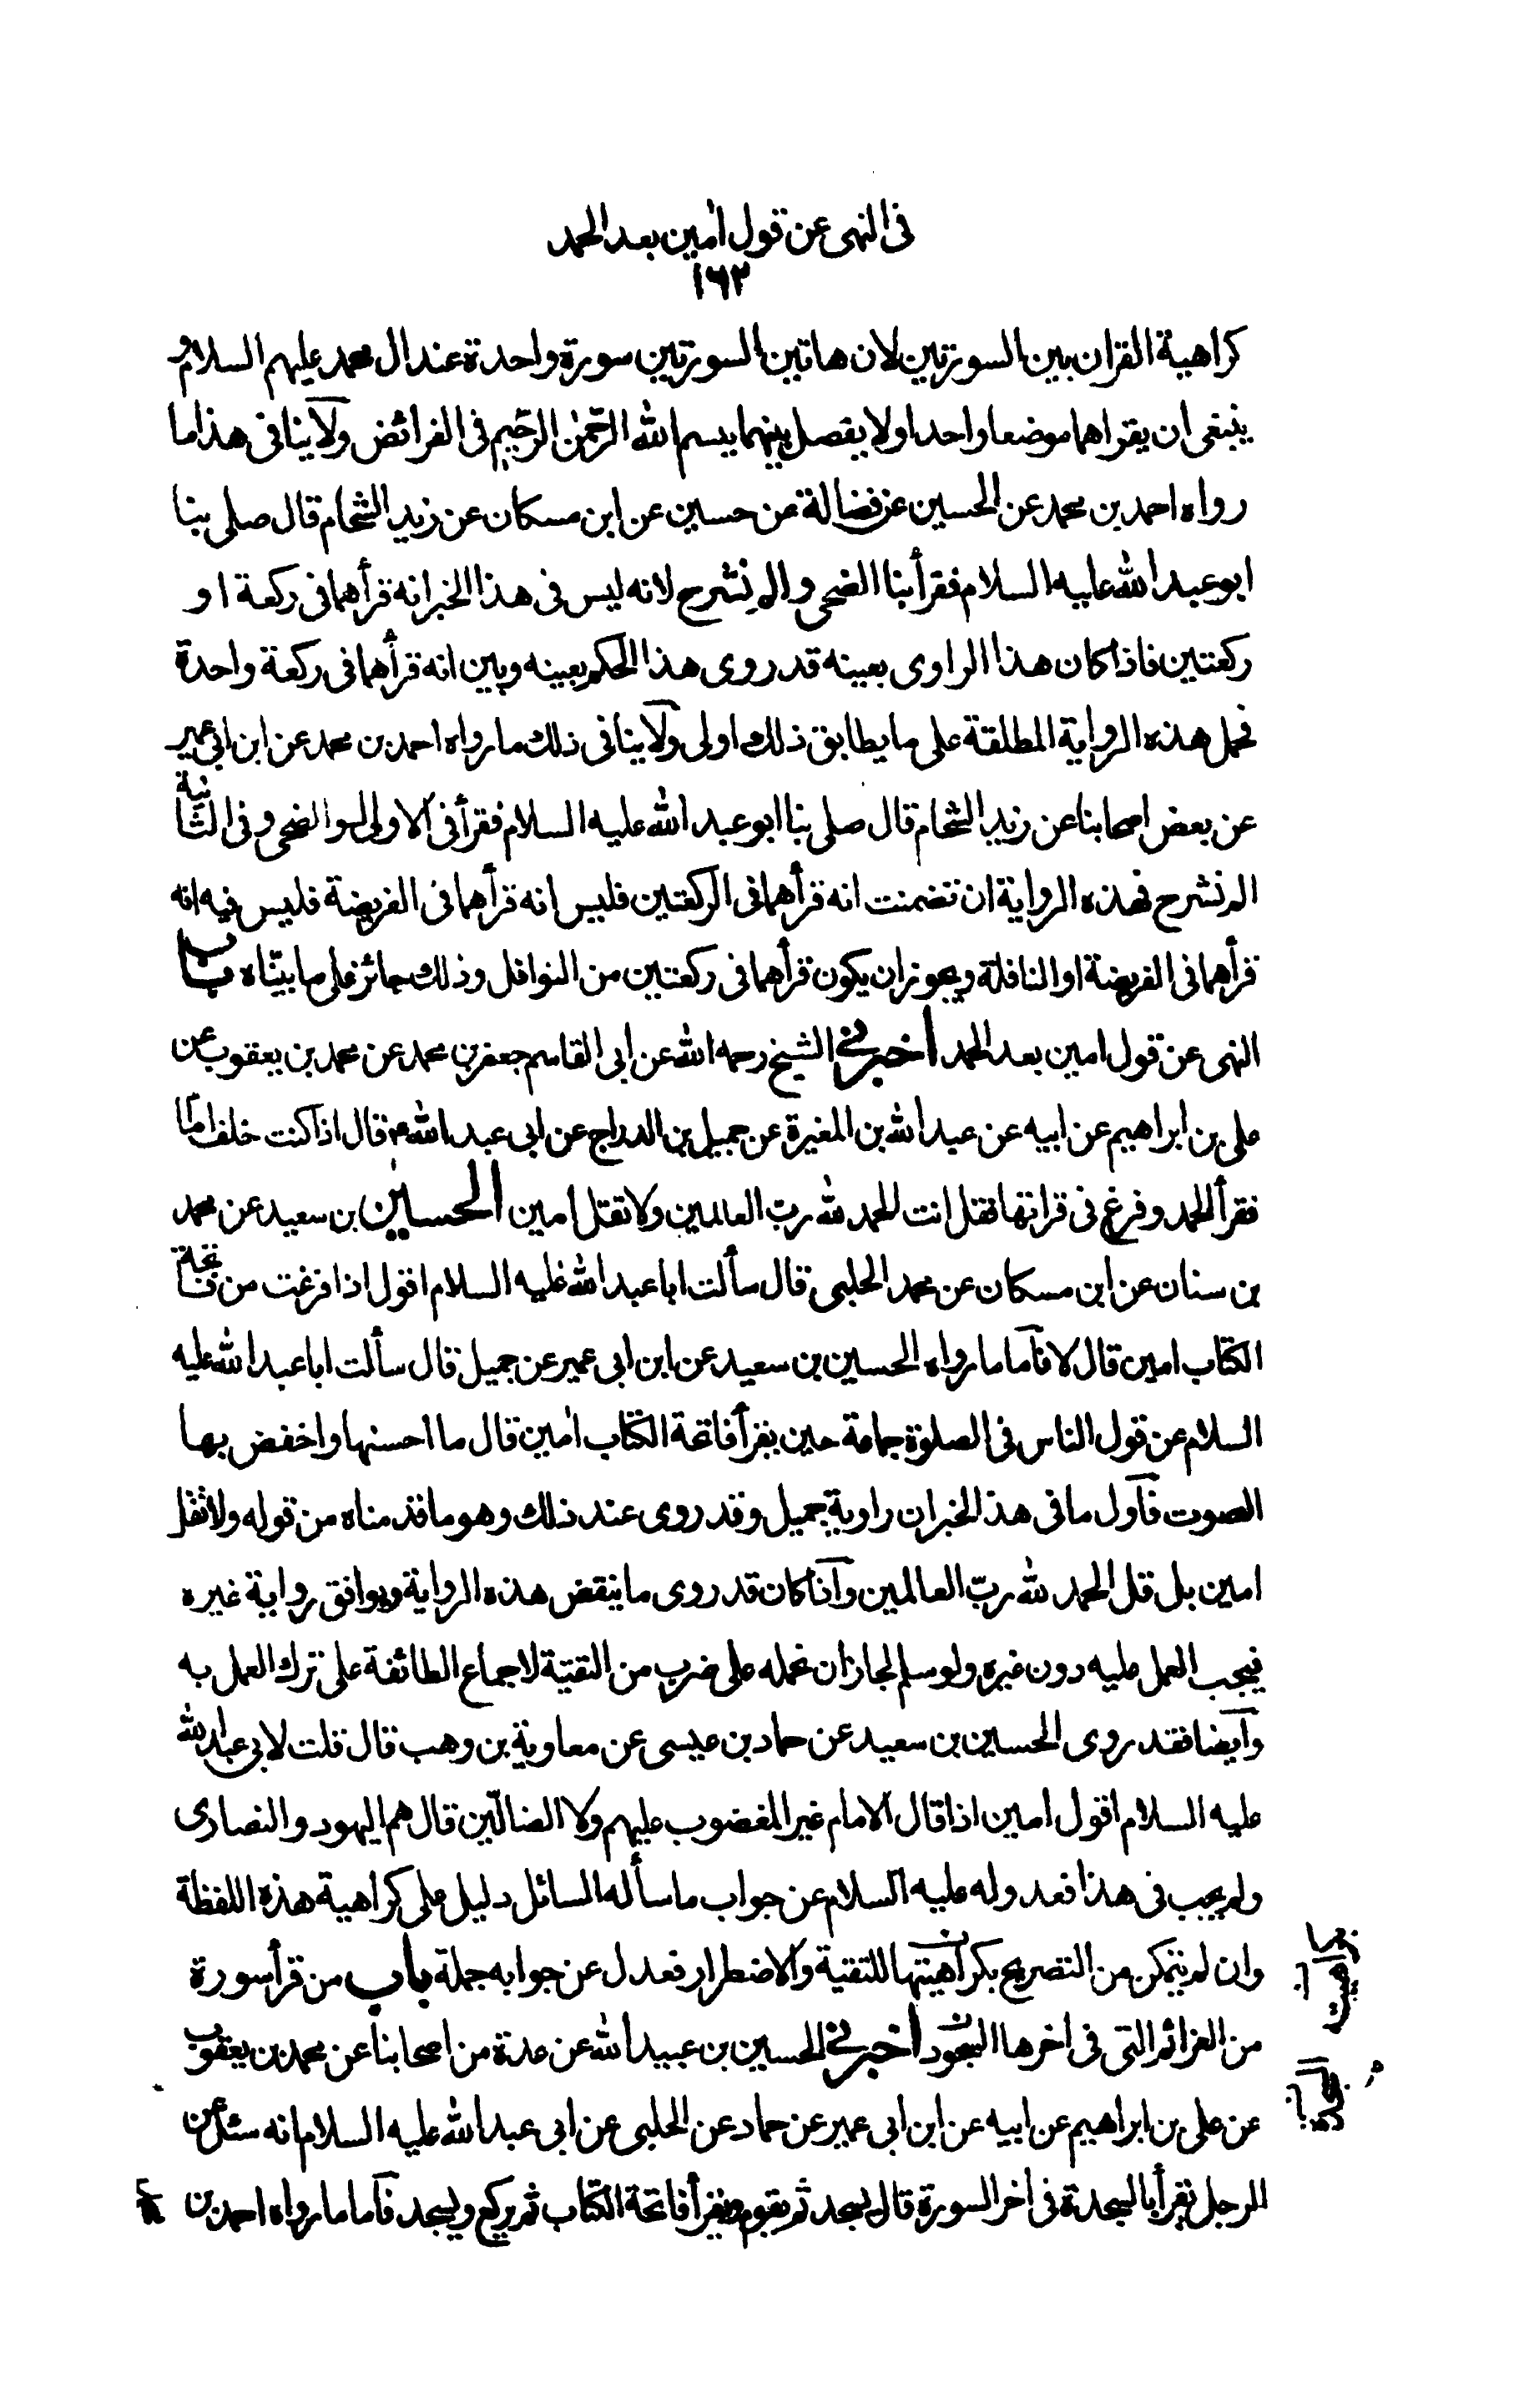 فى النهى عن قول امين بعد الحمد
١٦٢
كراهية القران بين السورتين لان هاتين السورتين سورة واحدة عند ال محمد عليهم السلام و
ينبغى ان يقراهما موضعا واحدا ولا يفصل بينهما ببسم الله الرّحمٰن الرّحيم فى الفرائض ولا ينافى هذا ما
رواه احمد بن محمد عن الحسين عن فضالة عن حسين عن ابن مسكان عن زيد الشحام قال صلى بنا
ابو عبد الله عليه السلام فقرأ بنا الضحى والم نشرح لانه ليس فى هذا الخبر انه قرأهما فى ركعة او
ركعتين فاذا كان هذا الراوى بعينه قد روى هذا الحكم بعينه وبين انه قرأهما فى ركعة واحدة
فحمل هذه الرواية المطلقة على ما يطابق ذلك اولى ولا ينافى ذلك ما رواه احمد بن محمد عن ابن ابى عمير
عن بعض اصحابنا عن زيد الشحام قال صلى بنا ابو عبد الله عليه السلام فقرأ فى الاولى والضحى وفى الثانية
الم نشرح فهذه الرواية ان تضمنت انه قرأهما فى الركعتين فليس انه قرأهما فى الفريضة فليس فيه انه
قرأهما فى الفريضة او النافلة ويجوز ان يكون قرأهما فى ركعتين من النوافل وذلك جائز على ما بيّناه باب
النهى عن قول امين بعد الحمد اخبرنى الشيخ رحمه الله عن ابى القاسم جعفر بن محمد عن محمد بن يعقوب عن
على بن ابراهيم عن ابيه عن عبد الله بن المغيرة عن جميل بن الدراج عن ابى عبد الله ع قال اذا كنت خلف امام
فقرأ الحمد وفرغ فى قرائتها فقل انت الحمد لله ربّ العالمين ولا تقل امين الحسين بن سعيد عن محمد
بن سنان عن ابن مسكان عن محمد الحلبى قال سألت ابا عبد الله عليه السلام اقول اذا فرغت من فاتحة
الكتاب امين قال لا فاما ما رواه الحسين بن سعيد عن ابن ابى عمير عن جميل قال سألت ابا عبد الله عليه
السلام عن قول الناس فى الصلوة جماعة حين يقرأ فاتحة الكتاب امين قال ما احسنها واخفض بها
الصوت فاول ما فى هذا الخبر ان راوية جميل وقد روى عند ذلك وهو ما قدمناه من قوله ولا تقل
امين بل قل الحمد لله ربّ العالمين واذا كان قد روى ما ينقض هذه الرواية ويوافق رواية غيره
فيجب العمل عليه دون غيره ولو سلم لجاز ان نحمله على ضرب من التقيّة لاجماع الطائفة على ترك العمل به
وايضا فقد روى الحسين بن سعيد عن حماد بن عيسى عن معاوية بن وهب قال قلت لابى عبد الله
عليه السلام اقول امين اذا قال الامام غير المغضوب عليهم ولا الضالّين قال هم اليهود والنصارى
ولم يجب فى هذا فعدوله عليه السلام عن جواب ما سأله السائل دليل على كراهية هذه اللفظة
وان لم يتمكن من التصريح بكراهيتها للتقية والاضطرار فعدل عن جوابه جملة باب من قرأ سورة
من العزائم التى فى اخرها السجود اخبرنى الحسين بن عبيد الله عن عدة من اصحابنا عن محمد بن يعقوب
عن على بن ابراهيم عن ابيه عن ابن ابى عمير عن حماد عن الحلبى عن ابى عبد الله عليه السلام انه سئل عن
الرجل يقرأ بالسجدة فى اخر السورة قال يسجد ثم يقوم فيقرأ فاتحة الكتاب ثم يركع ويسجد فاما ما رواه احمد بن